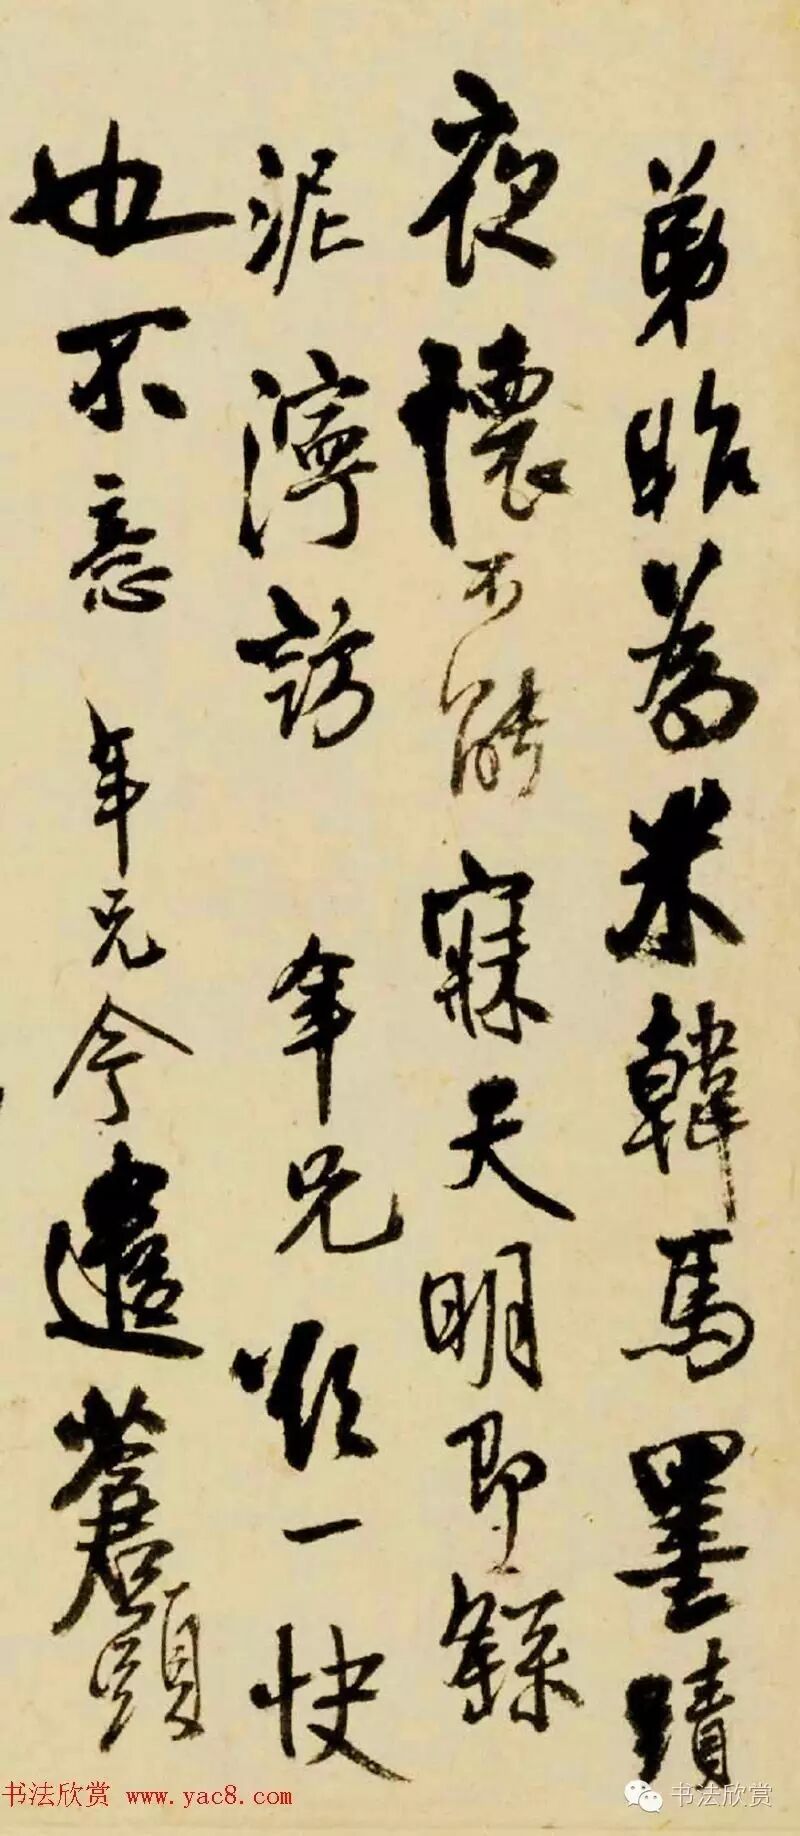 弟昨為米韓馬墨蹟
夜懷不能寐天明即
泥濘訪年兄一快
也不意年兄今遣蒼頭
书法欣赏 www.yac8.com
书法欣赏